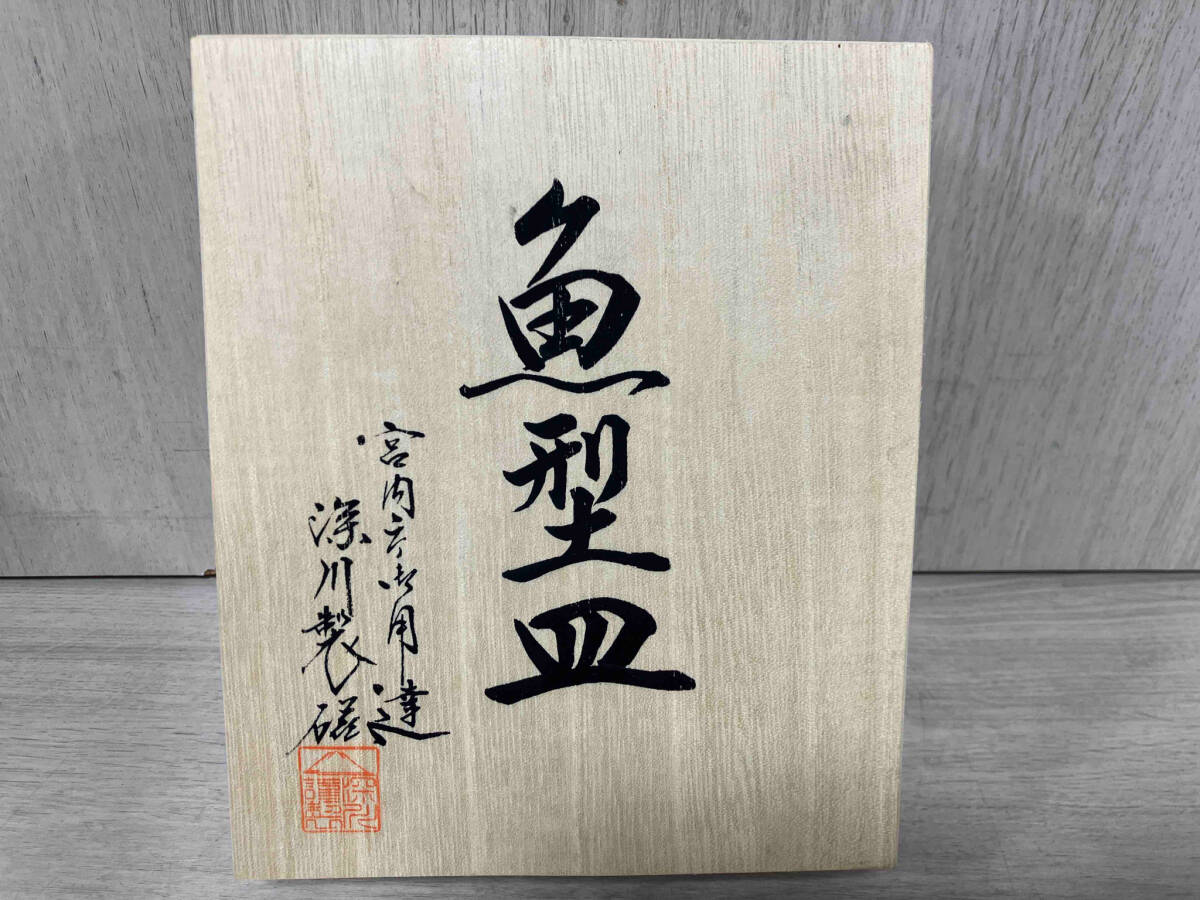 魚型皿
宮内庁御用達
深川製磁